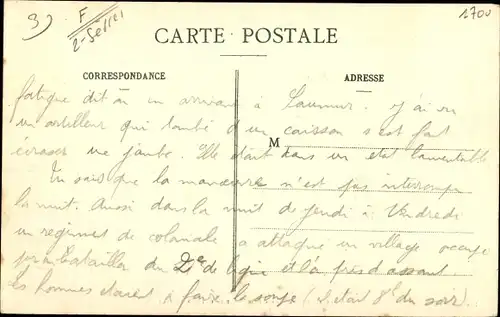 3)
F
2-Sèvres
1700
CARTE POSTALE
CORRESPONDANCE
ADRESSE
M
fatigue dit on en arrivant à Saumur. J'ai vu
un artilleur qui tombé d'un caisson s'est fait
écraser une jambe. Elle était dans un état lamentable
Tu sais que la manœuvre n'est pas interrompue
la nuit. Aussi dans la nuit de jeudi à Vendredi
un régiment de coloniale a attaqué un village occupé
par le bataillon du 2e de ligne et l'a pris d'assaut
Les hommes étaient à faire la soupe (il était 8h du soir).